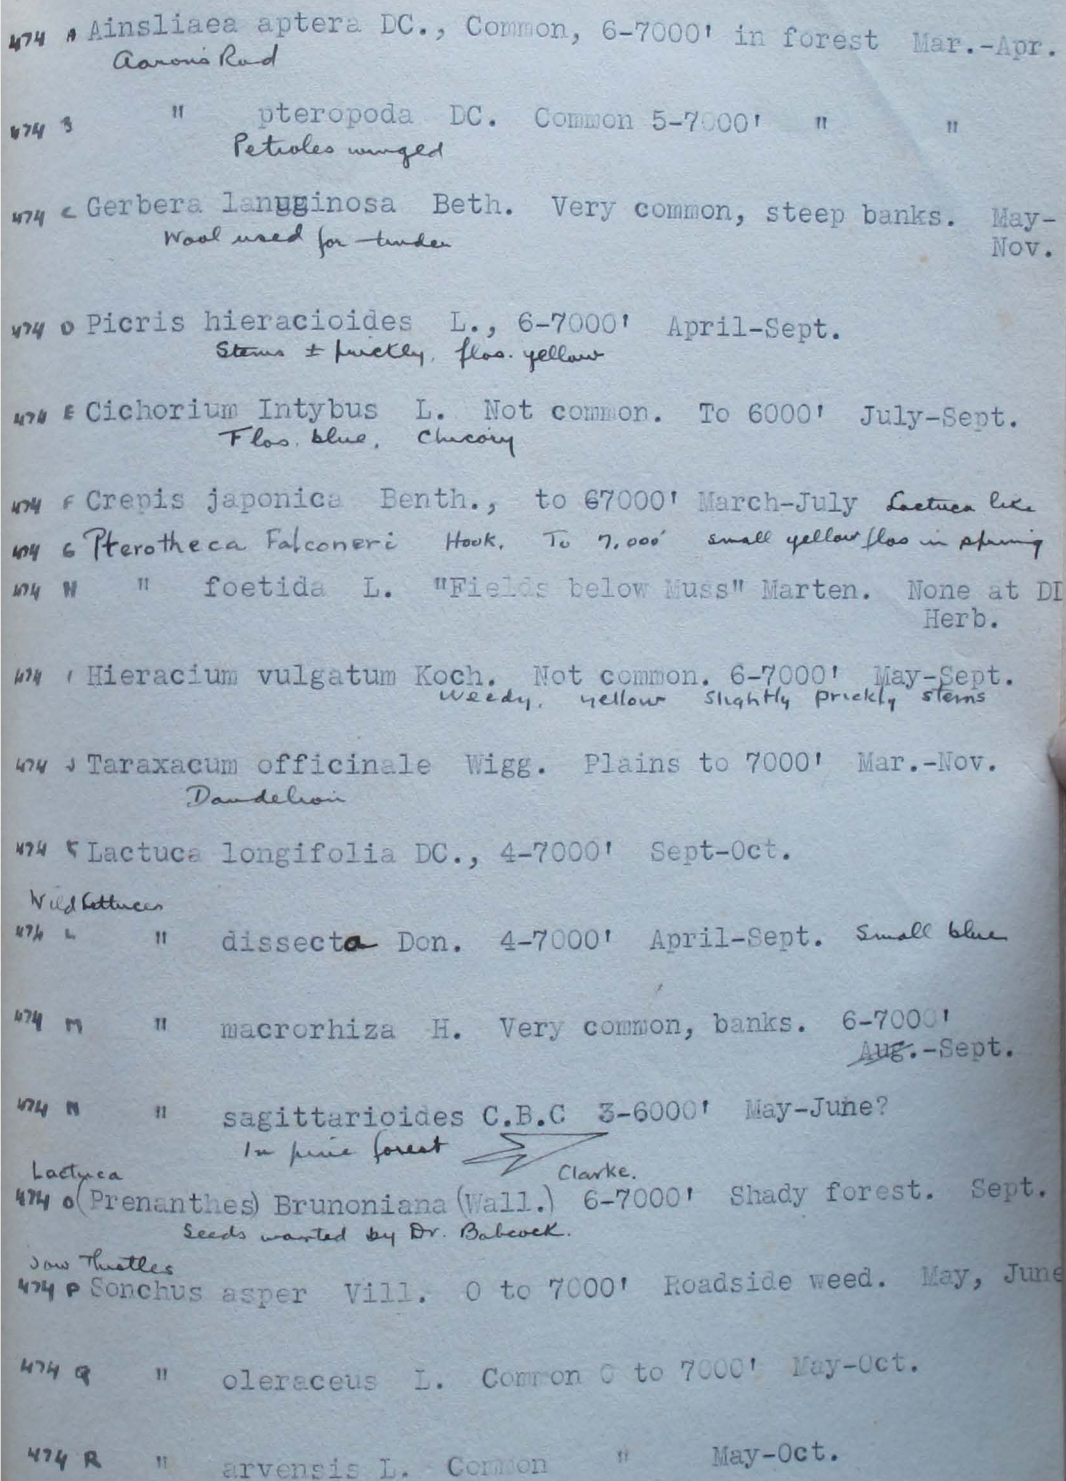 474 A Ainsliaea aptera DC., Common, 6-7000' in forest Mar.-Apr.
Aaron's Rod
474 B " pteropoda DC. Common 5-7000' " "
Petioles winged
474 C Gerbera lanuginosa Beth. Very common, steep banks. May-
Nov.
Wool used for tinder
474 D Picris hieracioides L., 6-7000' April-Sept.
Stems ± prickly, flos. yellow
474 E Cichorium Intybus L. Not common. To 6000' July-Sept.
Flos. blue, Chicory
474 F Crepis japonica Benth., to 67000' March-July Lactuca like
474 G Pterotheca Falconeri Hook. To 7,000' small yellow flos in spring
474 H " foetida L. "Fields below Muss" Marten. None at DD
Herb.
474 I Hieracium vulgatum Koch. Not common. 6-7000' May-Sept.
Weedy, yellow slightly prickly stems
474 J Taraxacum officinale Wigg. Plains to 7000' Mar.-Nov.
Dandelion
474 K Lactuca longifolia DC., 4-7000' Sept-Oct.
Wild Lettuces
474 L " dissecta Don. 4-7000' April-Sept. Small blue
474 M " macrorhiza H. Very common, banks. 6-7000'
Aug.-Sept.
474 N " sagittarioides C.B.C 3-6000' May-June?
In pine forest
Lactuca Clarke.
474 O (Prenanthes) Brunoniana (Wall.) 6-7000' Shady forest. Sept.
Seeds wanted by Dr. Babcock.
Sow Thistles
474 P Sonchus asper Vill. 0 to 7000' Roadside weed. May, June
474 Q " oleraceus L. Common 0 to 7000' May-Oct.
474 R " arvensis L. Common " May-Oct.